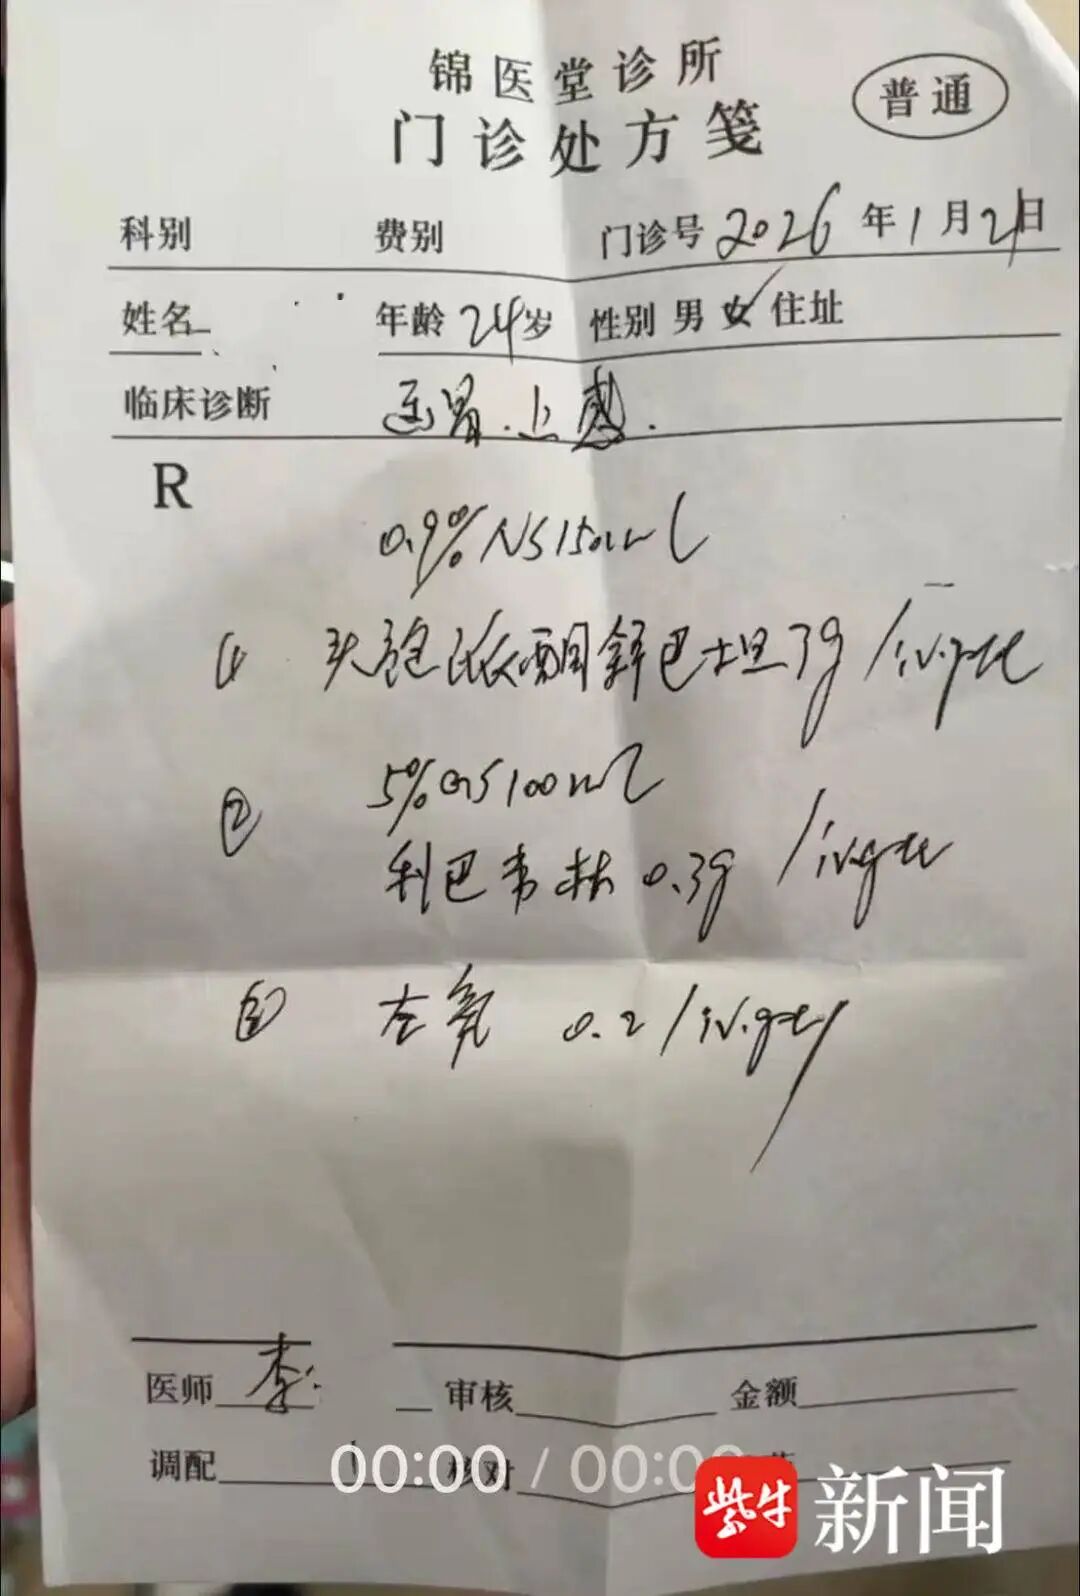 锦医堂诊所
普通
门诊处方笺
科别 费别 门诊号 2026年1月21日
姓名 年龄 24岁 性别 男 女✓ 住址
临床诊断 上感.
R
0.9% NS 150ml
① 头孢哌酮舒巴坦 3g / iv.gtt
② 5% GS 100ml
利巴韦林 0.3g / iv.gtt
③ 左氧 0.2 / iv.gtt
医师 李 审核 金额
调配 核对
00:00 / 00:00
紫牛新闻